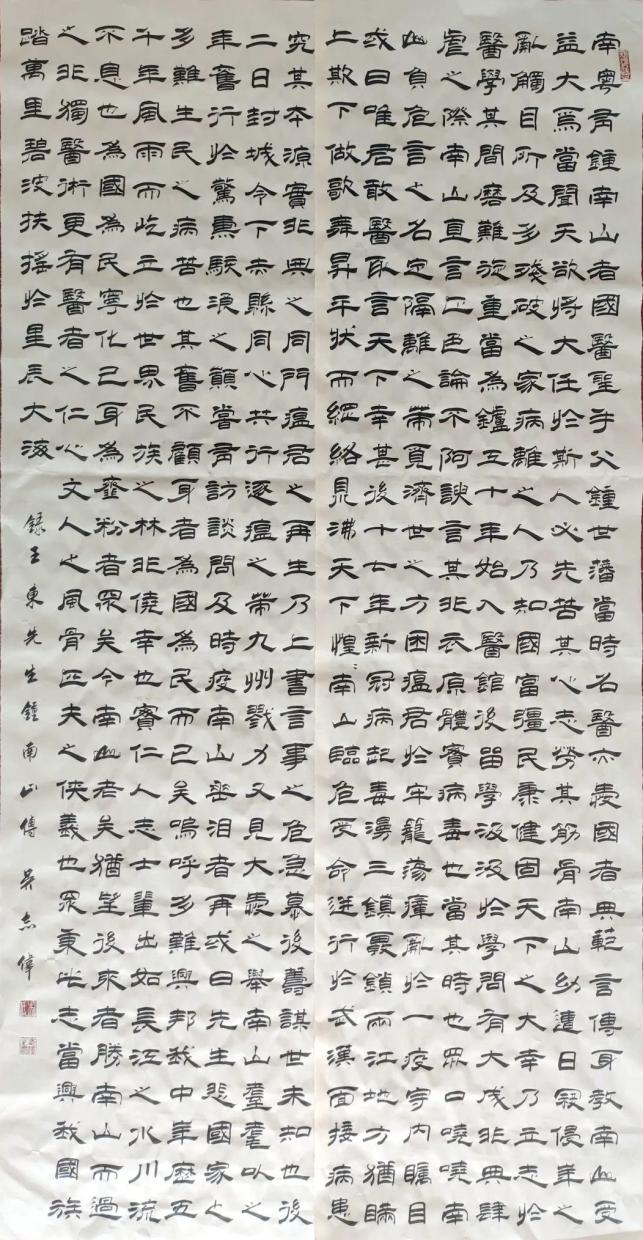 南粵有鍾南山者國醫聖手父鍾世藩當時名醫亦愛國者典範言傳身教南山受
益大焉當聞天欲將大任於斯人必先苦其心志勞其筋骨南山幼遭日寇侵華之
亂觸目所及多殘破之家病離之人乃知國富彊民康健固天下之大幸乃立志於
醫學其間磨難旋重當為鑪工十年始入醫館後留學汲汲於學問有大成非典肆
虐之際南山直言正色論不阿諛言其非衣原體實病毒也當其時也眾口嘵嘵南
山負危言之名定隔離之帶覓濟世之方困瘟君於牢籠蕩瘴亂於一疫宇內矚目
或曰唯君敢醫敢言天下幸甚後十七年新冠病起毒湯三鎮累鎖兩江地方猶瞞
上欺下做歌舞昇平狀而經絡見沸天下惶惶南山臨危受命逆行於武漢面接病患
究其本源實非典之同門瘟君之再生乃上書言事之危急慕後籌謀世未知也後
二日封城令下赤縣同心共行逐瘟之帶九州戮力又見大愛之舉南山耄耄以之
年舊行於驚熏駭浪之顛嘗有訪談問及時疫南山垂泪者再或曰先生悲國家之
多難生民之病苦也其舊不顧身者為國為民而已矣嗚呼多難興邦我中華歷五
千年風雨而屹立於世界民族之林非僥幸也實仁人志士輩出如長江之水川流
不息也為國為民寧化己身為齏粉者眾矣今南山老矣猶望後來者勝南山而過
之非獨醫術更有醫者之仁心文人之風骨匹夫之俠義也眾秉此志當興我國族
踏萬里碧波扶搖於星辰大海
錄王東先生鍾南山傳 吳志偉